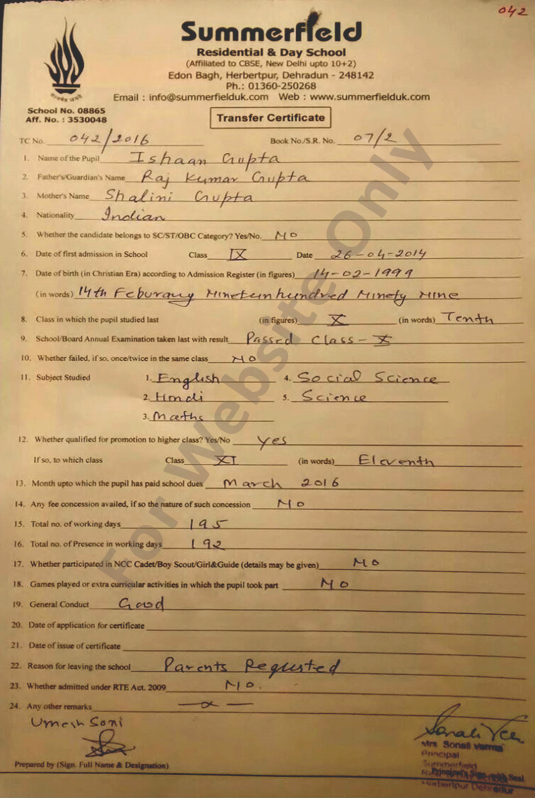 042
Summerfield
Residential & Day School
(Affiliated to CBSE, New Delhi upto 10+2)
Edon Bagh, Herbertpur, Dehradun - 248142
Ph.: 01360-250268
Email : info@summerfielduk.com Web : www.summerfielduk.com
School No. 08865
Aff. No. : 3530048
Transfer Certificate
TC No. 042/2016 Book No./S.R. No. 07/2
1. Name of the Pupil Ishaan Gupta
2. Father's/Guardian's Name Raj Kumar Gupta
3. Mother's Name Shalini Gupta
4. Nationality Indian
5. Whether the candidate belongs to SC/ST/OBC Category? Yes/No. No
6. Date of first admission in School Class IX Date 26-04-2014
7. Date of birth (in Christian Era) according to Admission Register (in figures) 14-02-1999
(in words) 14th Feburary Nineteenhundred Ninety Nine
8. Class in which the pupil studied last (in figures) X (in words) Tenth
9. School/Board Annual Examination taken last with result Passed Class-X
10. Whether failed, if so, once/twice in the same class No
11. Subject Studied 1. English 4. Social Science
2. Hindi 5. Science
3. Maths
12. Whether qualified for promotion to higher class? Yes/No Yes
If so, to which class Class XI (in words) Eleventh
13. Month upto which the pupil has paid school dues March 2016
14. Any fee concession availed, if so the nature of such concession No
15. Total no. of working days 195
16. Total no. of Presence in working days 192
17. Whether participated in NCC Cadet/Boy Scout/Girl&Guide (details may be given) No
18. Games played or extra curricular activities in which the pupil took part No
19. General Conduct Good
20. Date of application for certificate
21. Date of issue of certificate
22. Reason for leaving the school Parents Requested
23. Whether admitted under RTE Act. 2009 No.
24. Any other remarks
Umesh Soni
Mrs Sonali Varma
Principal
Summerfield
Prepared by (Sign. Full Name & Designation)
Herbertpur Dehradur
For Website Only